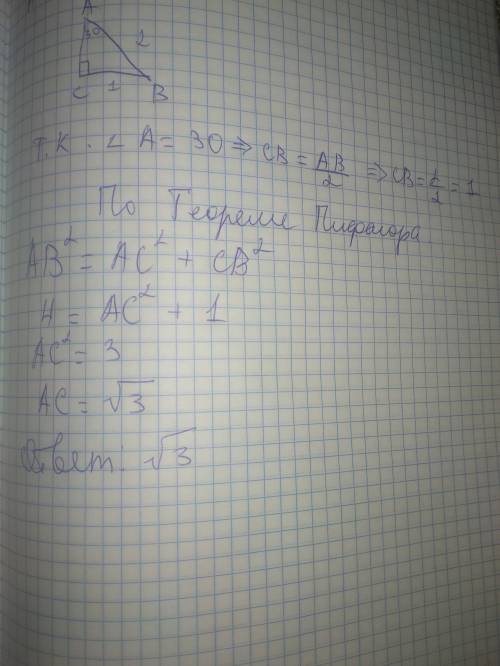 A
30
2
C 1 B
т.к. ∠A = 30 ⇒ CB = AB/2 ⇒ CB = 2/2 = 1
По Теореме Пифагора
AB² = AC² + CB²
4 = AC² + 1
AC² = 3
AC = √3
Ответ: √3